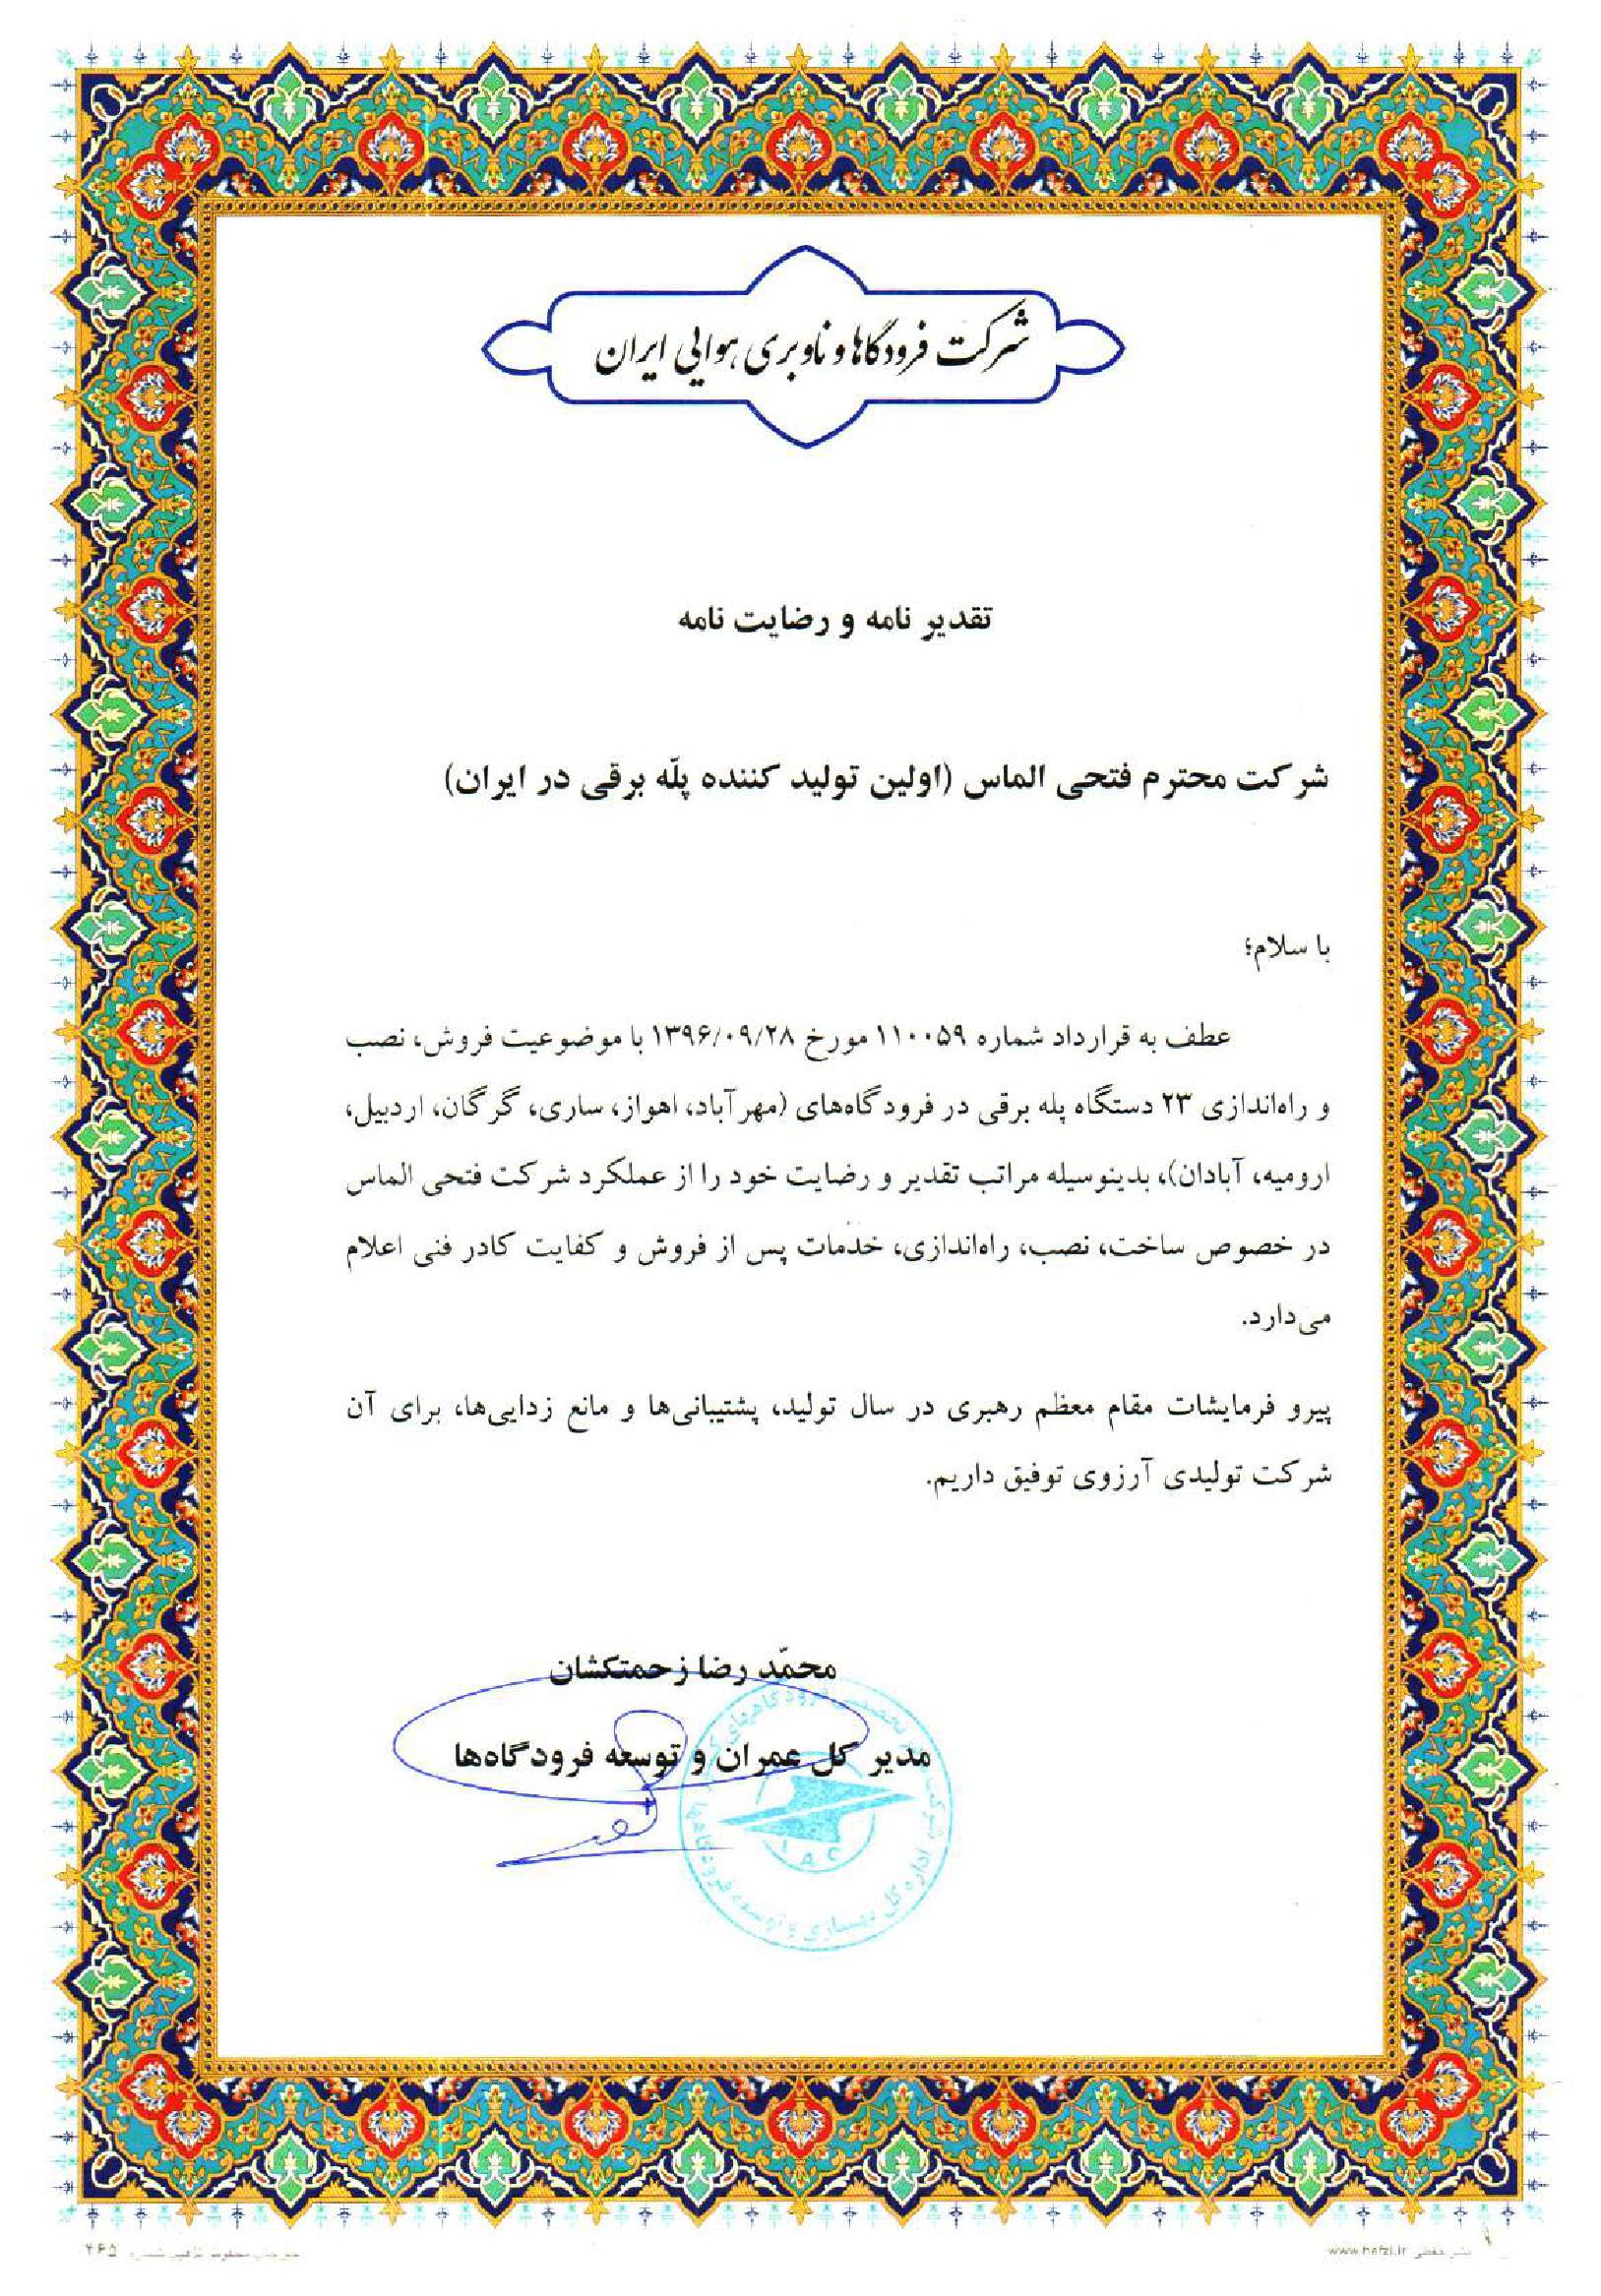 شرکت فرودگاها و ناوبری هوایی ایران
تقدیر نامه و رضایت نامه
شرکت محترم فتحی الماس (اولین تولید کننده پلّه برقی در ایران)
با سلام؛
عطف به قرارداد شماره ۱۱۰۰۵۹ مورخ ۱۳۹۶/۰۹/۲۸ با موضوعیت فروش، نصب
و راه‌اندازی ۲۳ دستگاه پله برقی در فرودگاه‌های (مهرآباد، اهواز، ساری، گرگان، اردبیل،
ارومیه، آبادان)، بدینوسیله مراتب تقدیر و رضایت خود را از عملکرد شرکت فتحی الماس
در خصوص ساخت، نصب، راه‌اندازی، خدمات پس از فروش و کفایت کادر فنی اعلام
می‌دارد.
پیرو فرمایشات مقام معظم رهبری در سال تولید، پشتیبانی‌ها و مانع زدایی‌ها، برای آن
شرکت تولیدی آرزوی توفیق داریم.
محمّد رضا زحمتکشان
مدیر کل عمران و توسعه فرودگاه‌ها
IAC
اداره کل بهسازی و توسعه فرودگاهها
www.hafzi.ir
۴۶۵